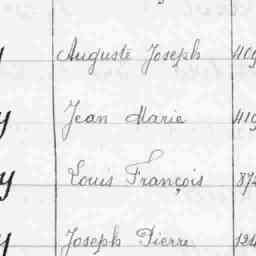 y Auguste Joseph
y Jean Marie
y Louis François
y Joseph Pierre